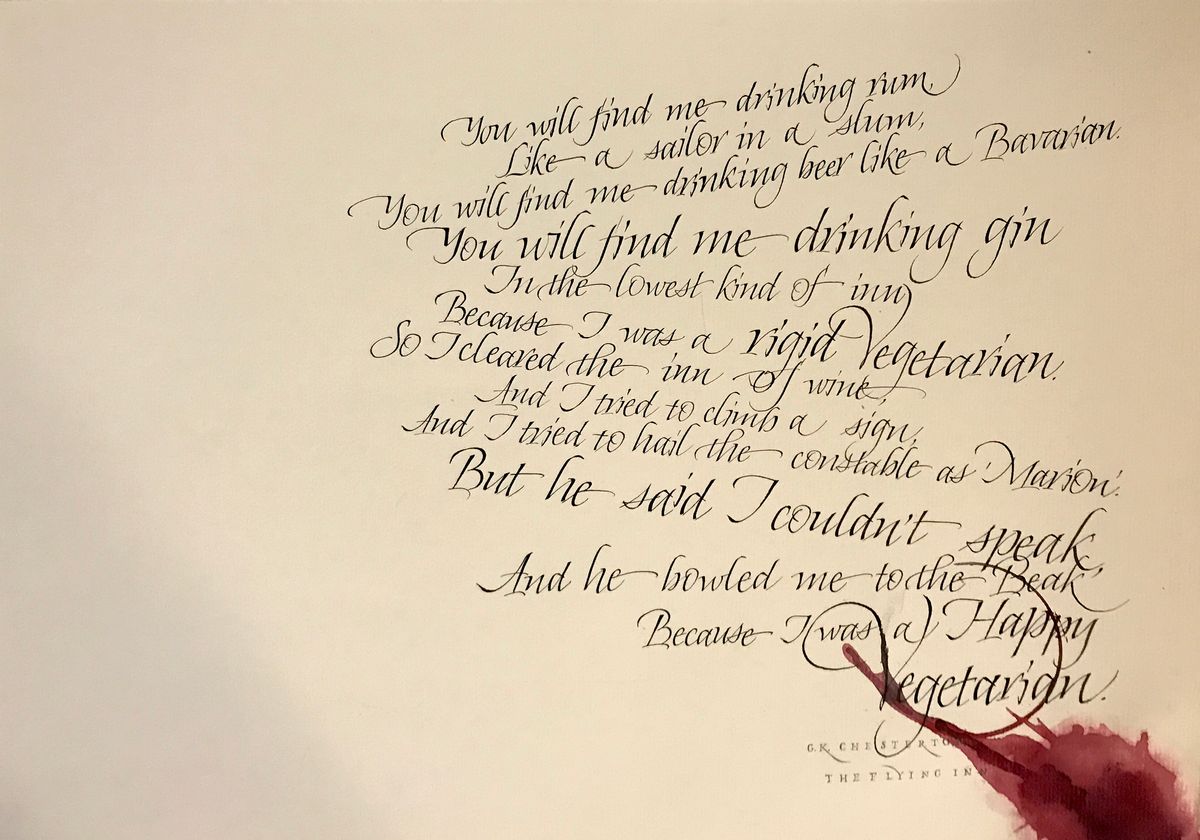 You will find me drinking rum,
Like a sailor in a slum,
You will find me drinking beer like a Bavarian.
You will find me drinking gin
In the lowest kind of inn
Because I was a rigid Vegetarian.
So I cleared the inn of wine,
And I tried to climb a sign,
And I tried to hail the constable as 'Marion'.
But he said I couldn't speak,
And he bowled me to the 'Beak'
Because I was a Happy
Vegetarian.
G.K. CHESTERTO
THE FLYING INN